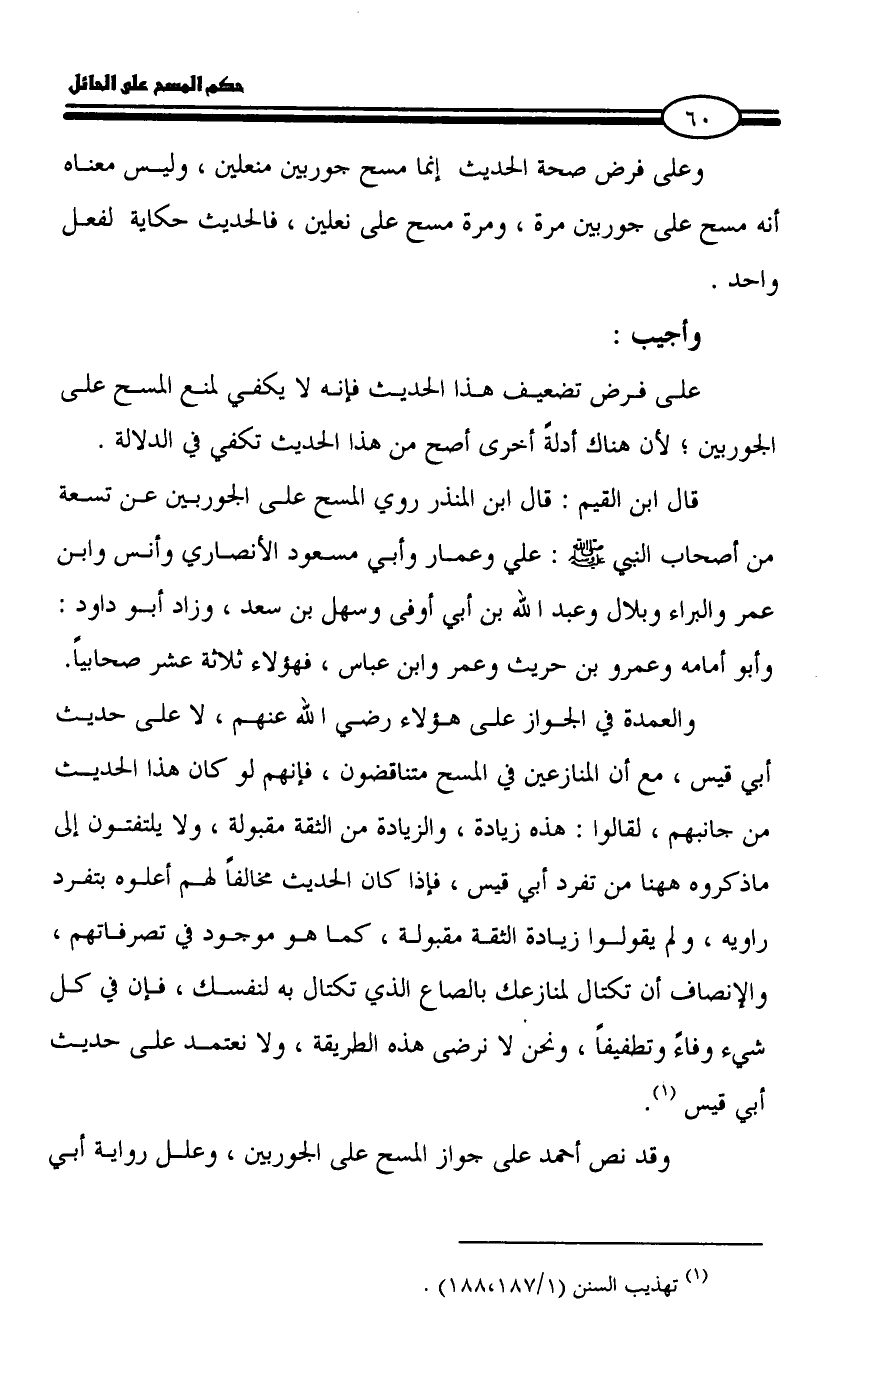 حكم المسح على الحائل
٦٠
وعلى فرض صحة الحديث إنما مسح جوربين منعلين ، وليس معناه
أنه مسح على جوربين مرة ، ومرة مسح على نعلين ، فالحديث حكاية لفعل
واحد .
وأجيب :
على فرض تضعيف هذا الحديث فإنه لا يكفي لمنع المسح على
الجوربين ؛ لأن هناك أدلةً أخرى أصح من هذا الحديث تكفي في الدلالة .
قال ابن القيم : قال ابن المنذر روي المسح على الجوربين عن تسعة
من أصحاب النبي ﷺ : علي وعمار وأبي مسعود الأنصاري وأنس وابن
عمر والبراء وبلال وعبد الله بن أبي أوفى وسهل بن سعد ، وزاد أبو داود :
وأبو أمامه وعمرو بن حريث وعمر وابن عباس ، فهؤلاء ثلاثة عشر صحابياً.
والعمدة في الجواز على هؤلاء رضي الله عنهم ، لا على حديث
أبي قيس ، مع أن المنازعين في المسح متناقضون ، فإنهم لو كان هذا الحديث
من جانبهم ، لقالوا : هذه زيادة ، والزيادة من الثقة مقبولة ، ولا يلتفتون إلى
ماذكروه ههنا من تفرد أبي قيس ، فإذا كان الحديث مخالفاً لهم أعلوه بتفرد
راويه ، ولم يقولوا زيادة الثقة مقبولة ، كما هو موجود في تصرفاتهم ،
والإنصاف أن تكتال لمنازعك بالصاع الذي تكتال به لنفسك ، فإن في كل
شيء وفاءً وتطفيفاً ، ونحن لا نرضى هذه الطريقة ، ولا نعتمد على حديث
أبي قيس (١).
وقد نص أحمد على جواز المسح على الجوربين ، وعلل رواية أبي
(١) تهذيب السنن (١٨٨،١٨٧/١) .